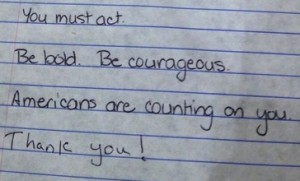 You must act.
Be bold. Be courageous.
Americans are counting on you.
Thank you!